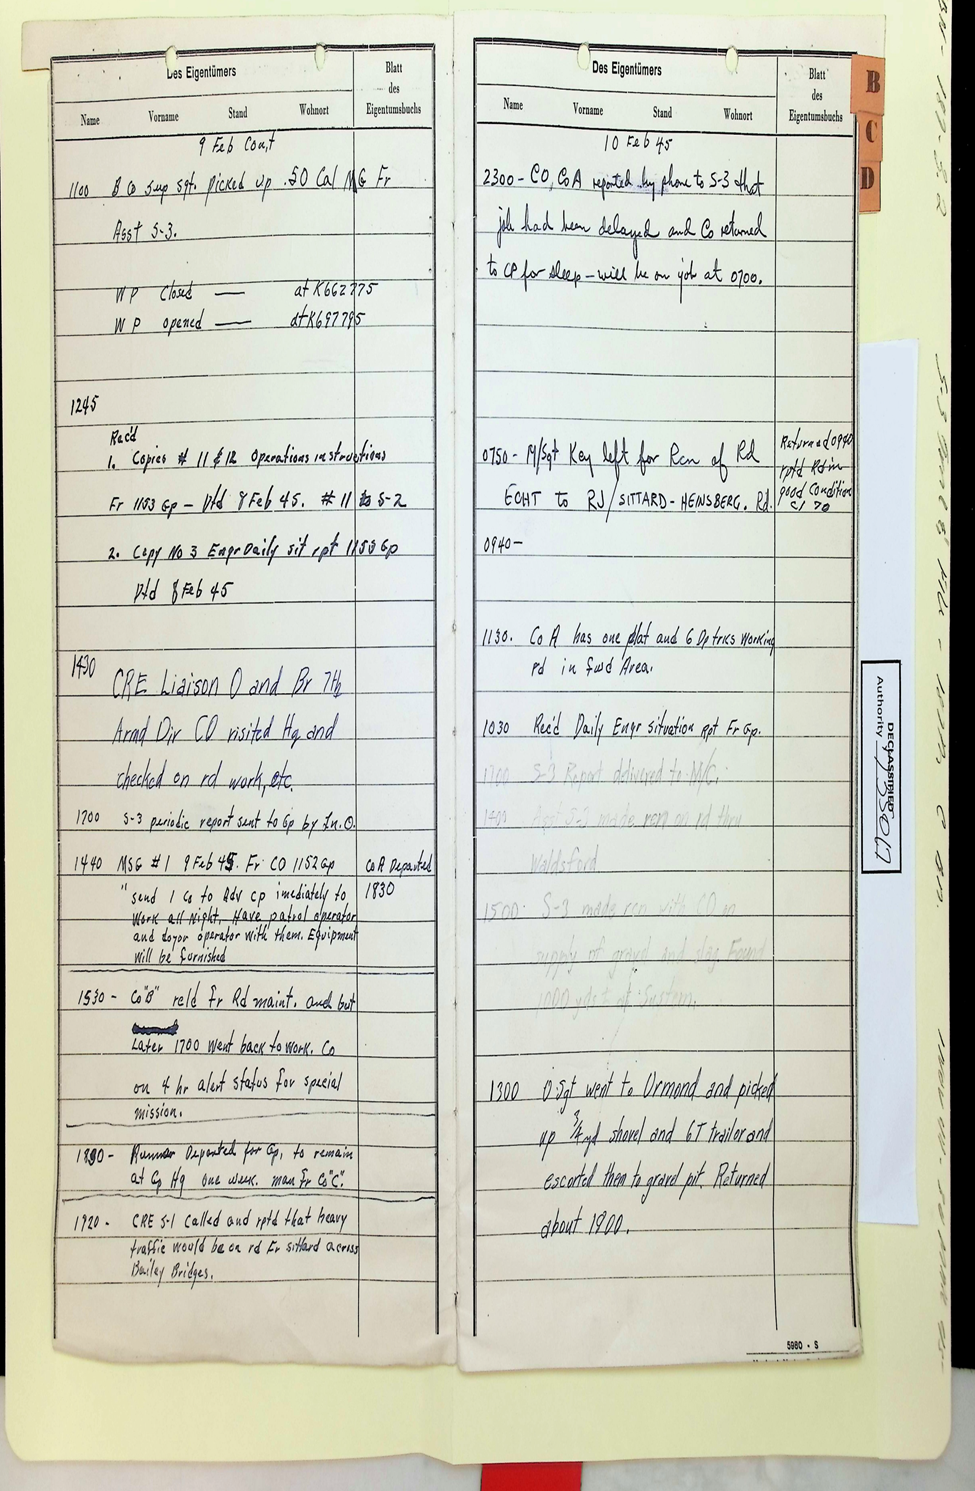 Des Eigentümers
Blatt
des
Eigentumsbuchs
Name Vorname Stand Wohnort
9 Feb Cont
1100 B Co Sup Sgt. Picked up .50 Cal MG Fr
Asst S-3.
WP Closed — at K662775
WP opened — at K697795
1245
Rec'd
1. Copies # 11 & 12 Operations instructions
Fr 1153 Gp - Dtd 8 Feb 45. #11 to S-2
2. Copy No 3 Engr Daily sit rpt 1153 Gp
Dtd 8 Feb 45
1430 CRE Liaison O and Br 7th
Armd Div CO visited Hq and
checked on rd work, etc.
1700 S-3 periodic report sent to Gp by Ln. O.
1440 MSG #1 9 Feb 45. Fr CO 1152 Gp
"send 1 Co to Adv CP imediately to
Work all Night. Have patrol operator
and dozor operator with them. Equipment
will be furnished
Co A Departed
1830
1530 - Co "B" reld fr Rd maint. and but
Later 1700 went back to work. Co
on 4 hr alert status for special
mission.
Runner Departed for Gp, to remain
at Gp Hq one week. man fr Co "C".
1920 - CRE S-1 Called and rptd that heavy
traffic would be on rd Fr sittard across
Bailey Bridges.
Des Eigentümers
Blatt
des
Eigentumsbuchs
Name Vorname Stand Wohnort
10 Feb 45
2300 - CO, Co A reported by phone to S-3 that
job had been delayed and Co returned
to CP for sleep - will be on job at 0700.
0750 - M/Sgt Key left for Rcn of Rd
ECHT to RJ/SITTARD-HEINSBERG. Rd.
Returned 0940
rptd Rd in
good Condition
Cl 70
0940 -
1130. Co A has one plat and 6 Dp trks working
rd in fwd Area.
1030 Rec'd Daily Engr Situation rpt Fr Gp.
1700 S-3 Report delivered to M/C.
1400 Asst S-3 made rcn on rd thru
Waldsford
1500. S-3 made rcn with CO on
supply of gravel and slag. Found
1000 yds at
1300 O Sgt went to Urmond and picked
up 3/4 yd shovel and 6T trailor and
escorted them to gravel pit. Returned
about 1800.
5980 - S
B
C
D
DECLASSIFIED
Authority 735017